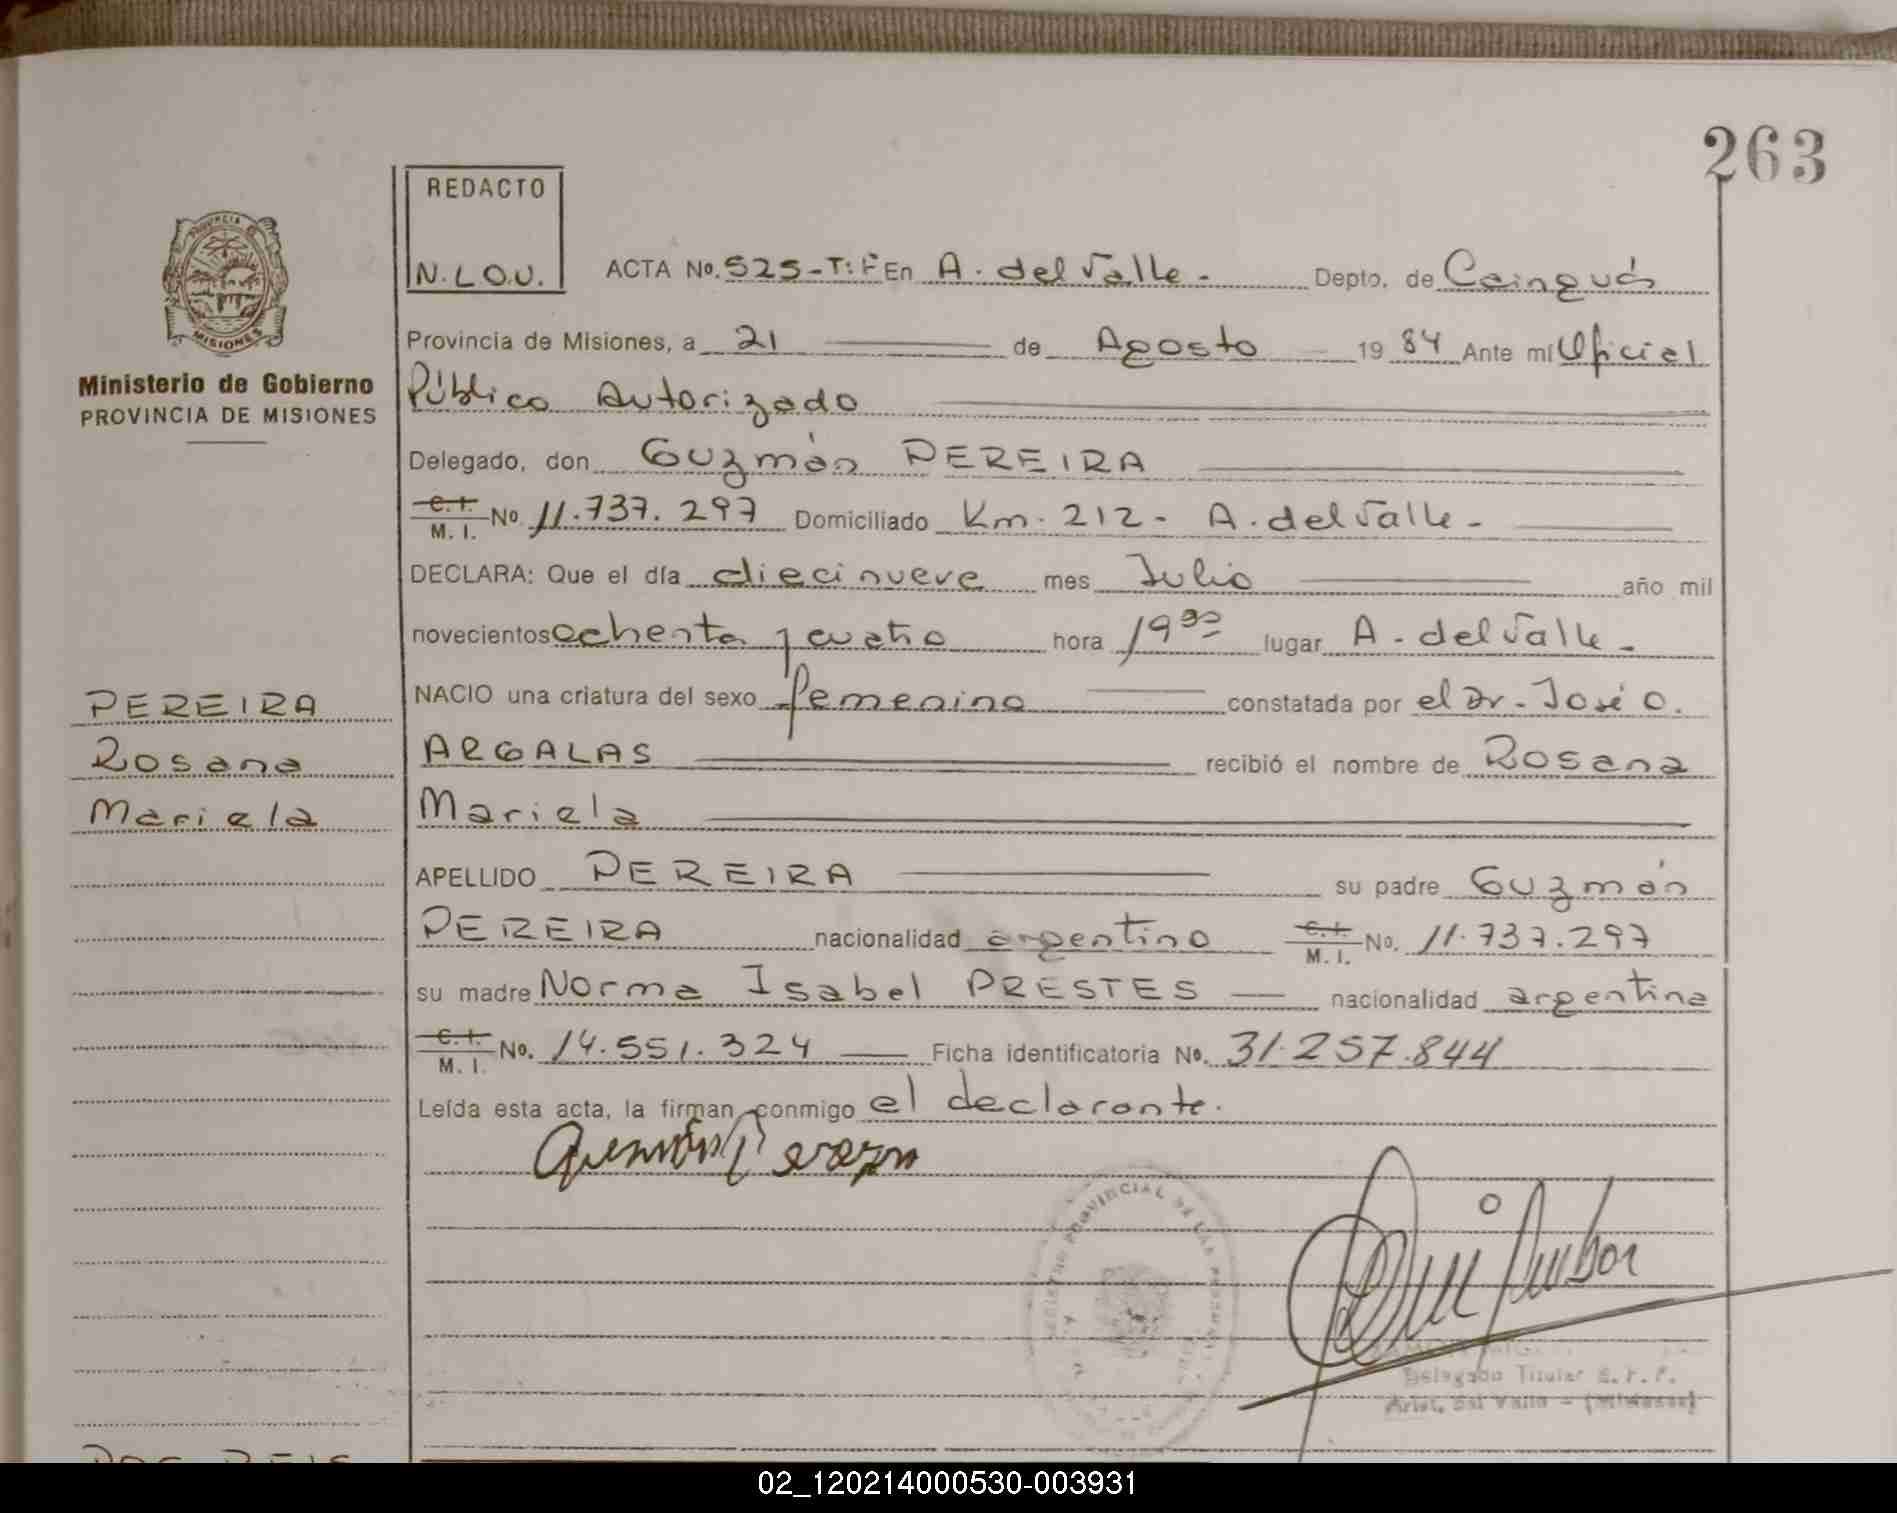 263
REDACTO
N.L.O.U.
ACTA No. 525-T:F En A. del Valle.- Depto. de Cainguás
Provincia de Misiones, a 21 de Agosto 1984 Ante mí Oficial
Ministerio de Gobierno
PROVINCIA DE MISIONES
Público Autorizado
Delegado, don Guzmán PEREIRA
C. I. M. I. No. 11.737.297 Domiciliado Km. 212- A. del Valle-
DECLARA: Que el día diecinueve mes Julio año mil
novecientos ochenta y cuatro hora 19 30 lugar A. del Valle.-
NACIO una criatura del sexo femenino constatada por el Dr. José O.
PEREIRA
Rosana
Mariela
ARGALAS recibió el nombre de Rosana
Mariela
APELLIDO PEREIRA su padre Guzmán
PEREIRA nacionalidad argentino C. I. M. I. No. 11.737.297
su madre Norma Isabel PRESTES nacionalidad argentina
C. I. M. I. No. 14.551.324 Ficha identificatoria No. 31.257.844
Leída esta acta, la firman conmigo el declarante.
PROVINCIAL DE LAS
Delegado Titular
Arist. Del Valle - (Misiones)
02_120214000530-003931